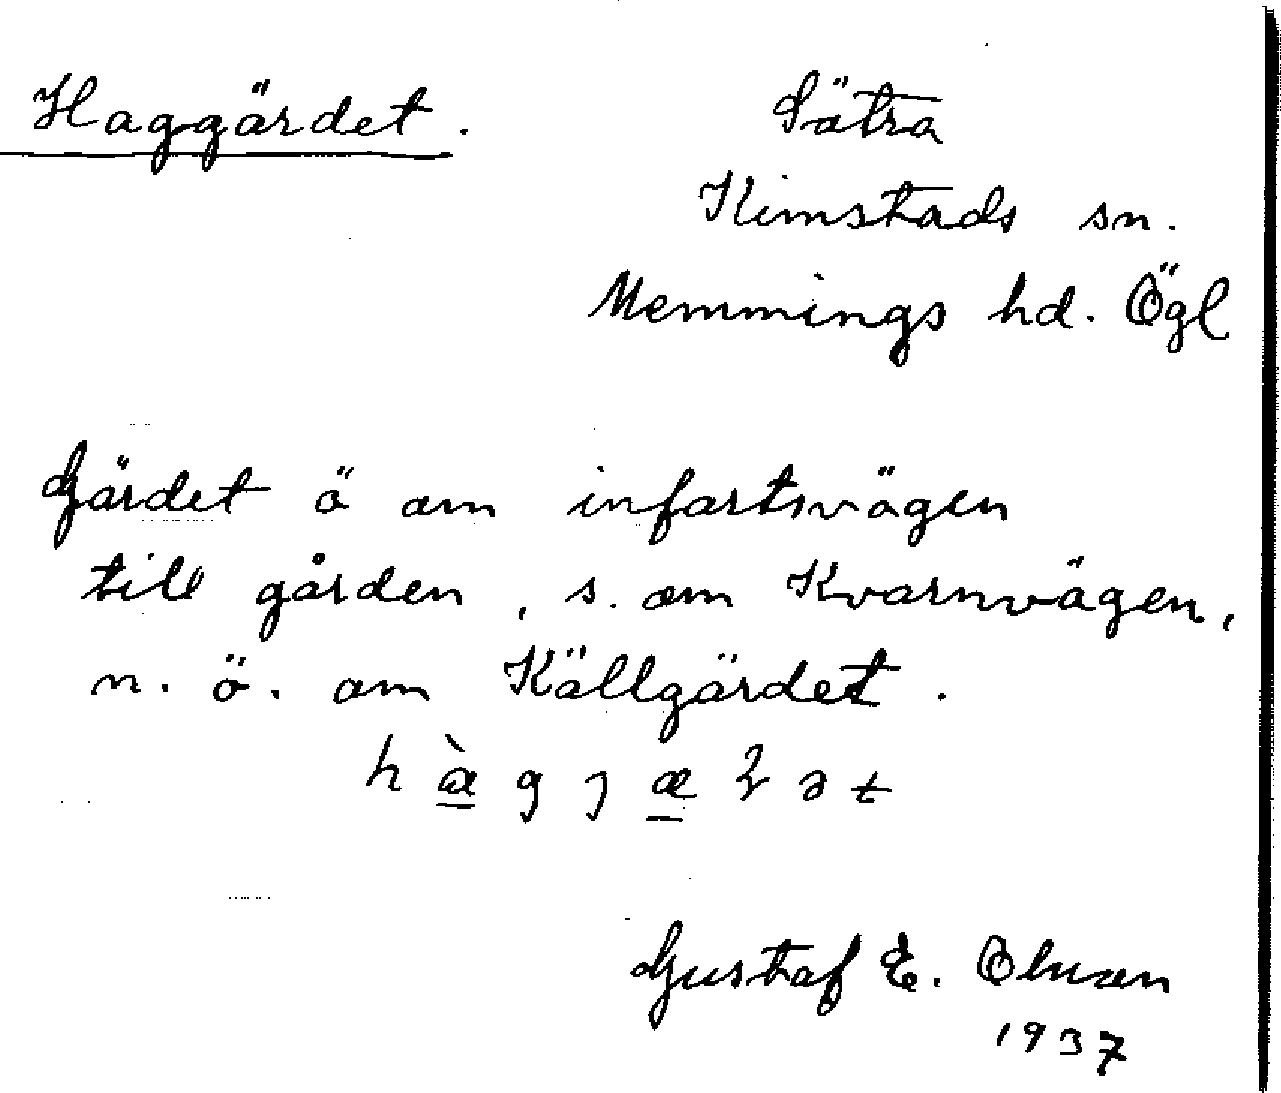 Haggärdet.
Sätra
Kimstads sn.
Memmings hd. Ögl
Gärdet ö om infartsvägen
till gården, s. om Kvarnvägen,
n. ö. om Källgärdet.
Gustaf E. Olsson
1937